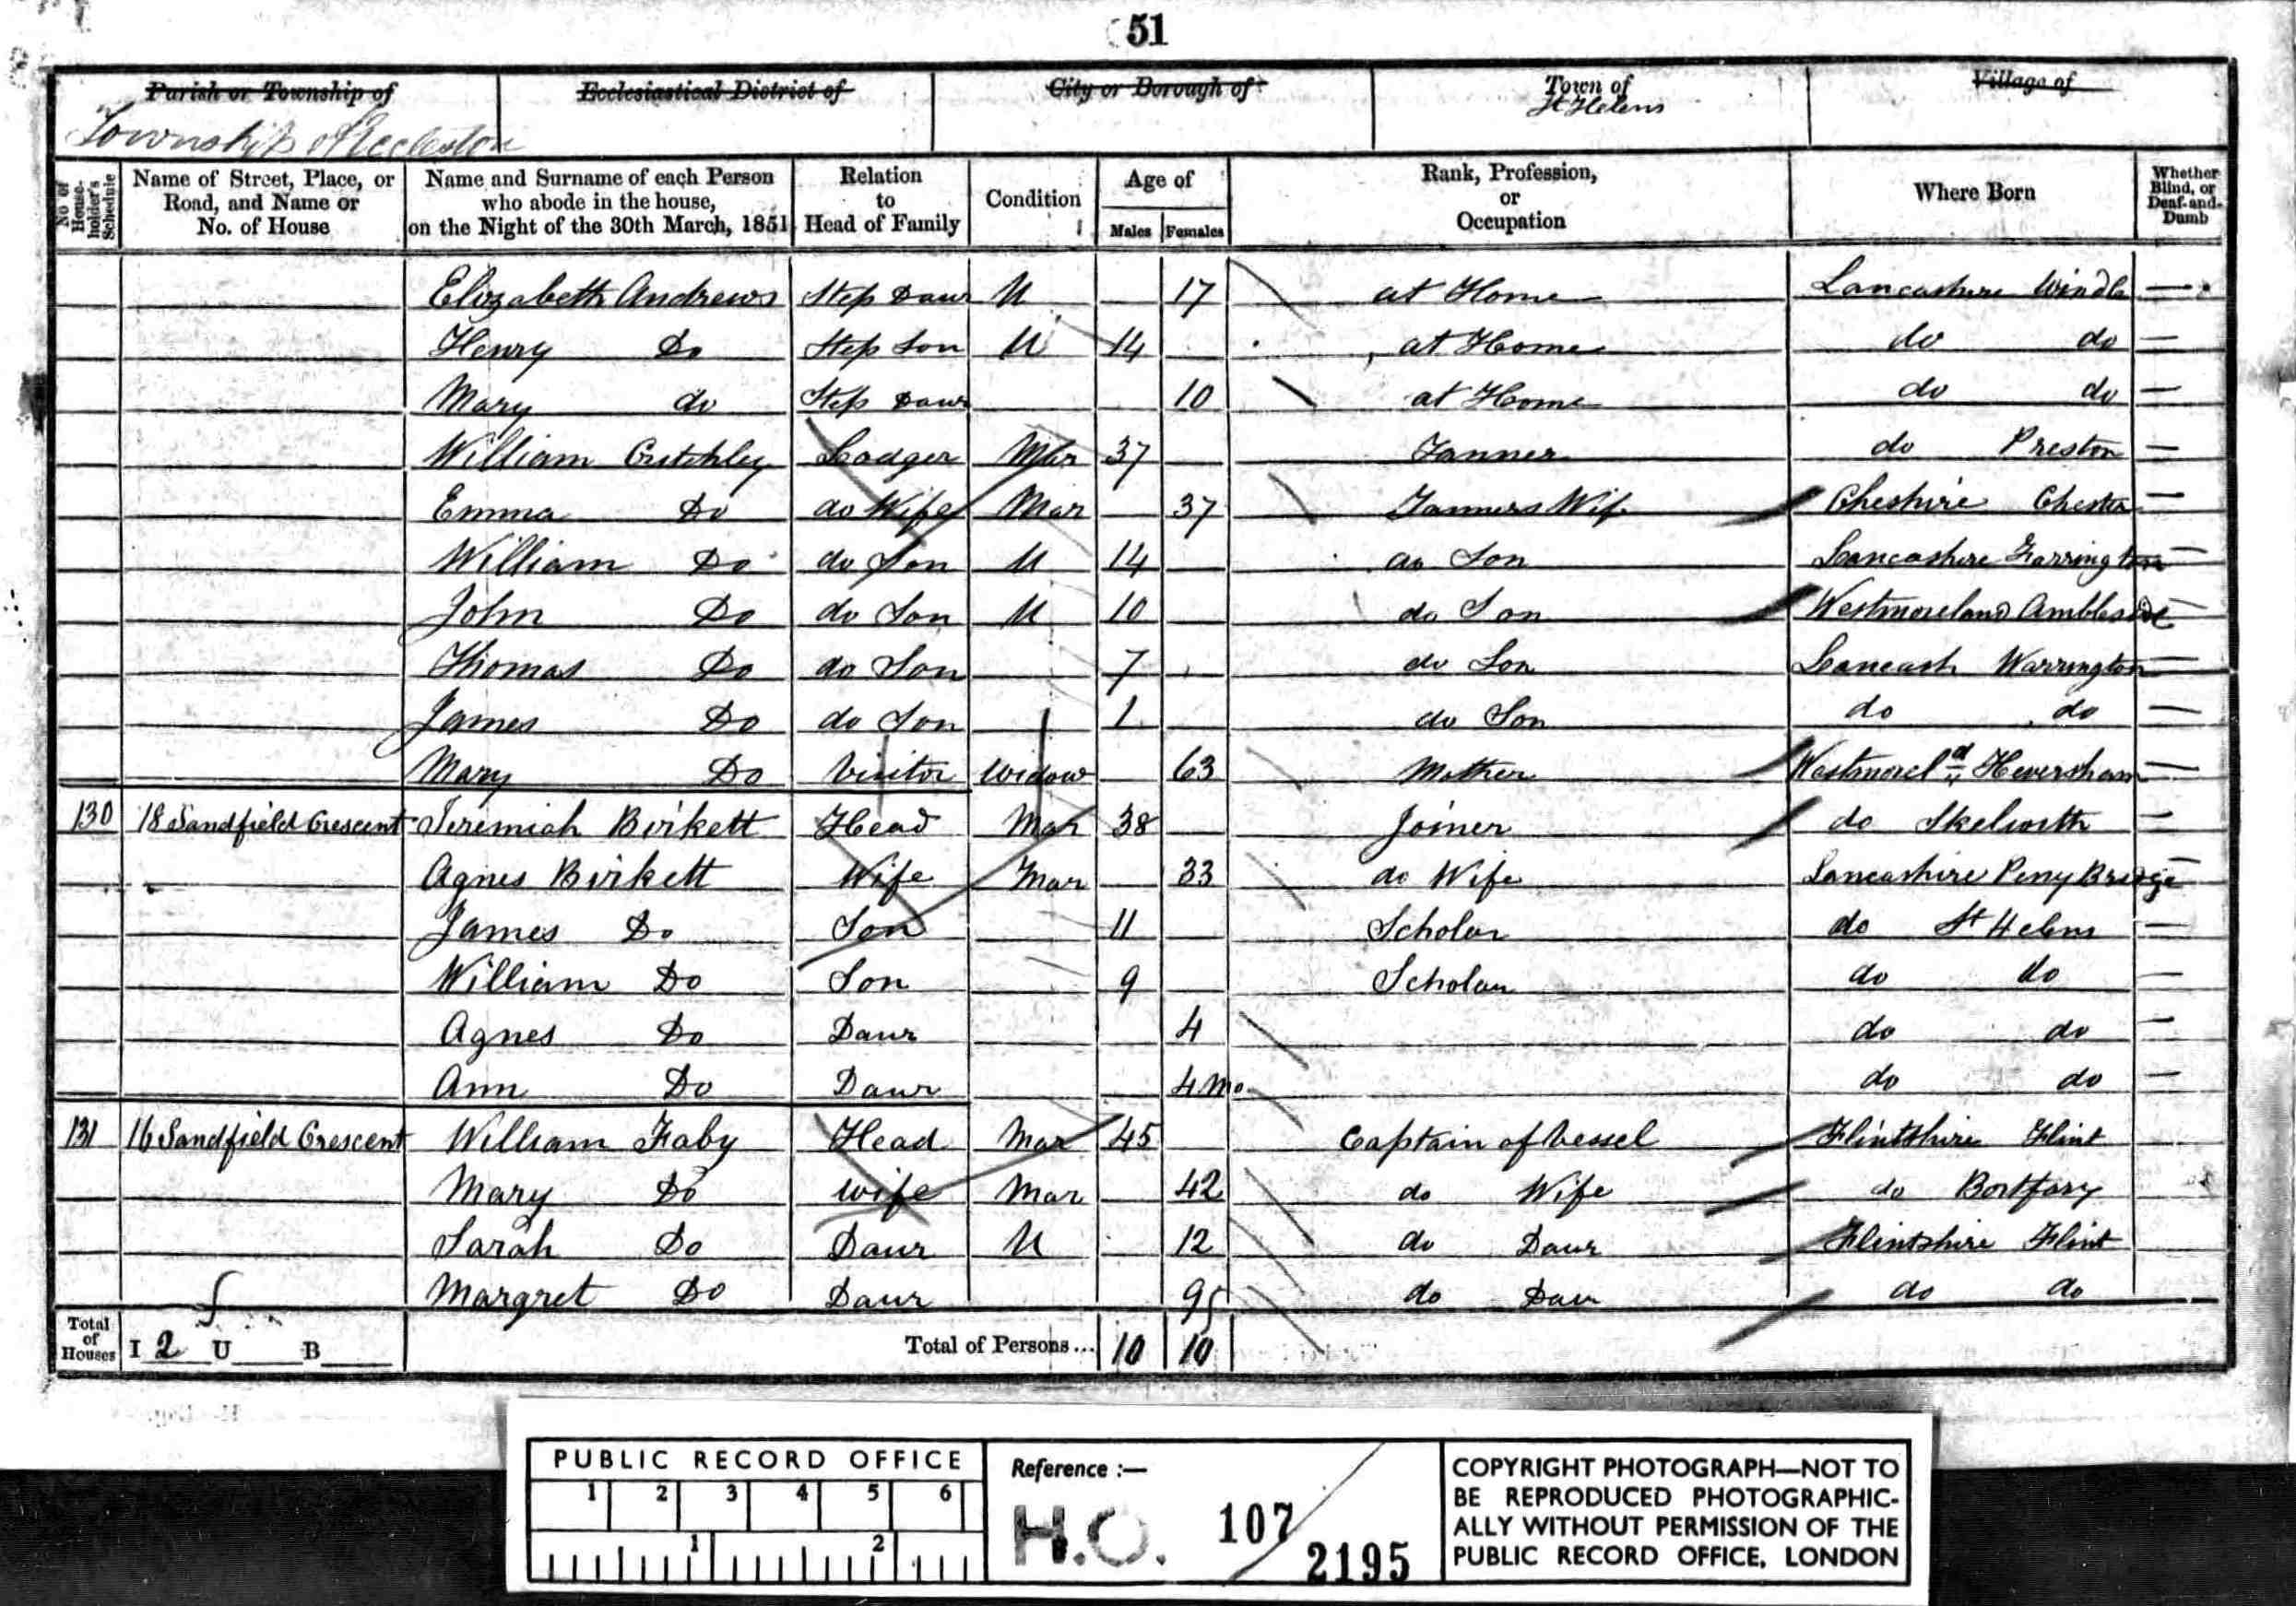 51
Parish or Township of Ecclesiastical District of City or Borough of Town of Village of
Township of Eccleston St Helens
No. of Householder's Schedule Name of Street, Place, or Road, and Name or No. of House Name and Surname of each Person who abode in the house, on the Night of the 30th March, 1851 Relation to Head of Family Condition Age of Males Females Rank, Profession, or Occupation Where Born Whether Blind, or Deaf-and-Dumb
Elizabeth Andrews Step Daur U 17 at Home Lancashire Windle —
Henry Do Step Son U 14 at Home do do —
Mary do Step Daur 10 at Home do do —
William Crutchley Lodger Mar 37 Tanner do Preston —
Emma Do do Wife Mar 37 Tanners Wife Cheshire Chester —
William Do do Son U 14 do Son Lancashire Farrington —
John Do do Son U 10 do Son Westmoreland Ambleside —
Thomas Do do Son 7 do Son Lancash Warrington —
James Do do Son 1 do Son do do —
Mary Do Visitor Widow 63 Mother Westmoreld Heversham —
130 18 Sandfield Crescent Jeremiah Birkett Head Mar 38 Joiner do Skelwith —
Agnes Birkett Wife Mar 33 do Wife Lancashire Peny Bridge —
James Do Son 11 Scholar do St Helens —
William Do Son 9 Scholar do do —
Agnes Do Daur 4 do do —
Ann Do Daur 4 Mo do do —
131 16 Sandfield Crescent William Faby Head Mar 45 Captain of Vessel Flintshire Flint
Mary Do Wife Mar 42 do Wife do Botfary
Sarah Do Daur U 12 do Daur Flintshire Flint
Margret Do Daur 9 do Daur do do
Total of Houses I 2 U B Total of Persons... 10 10
PUBLIC RECORD OFFICE
1 2 3 4 5 6
1 2
Reference :—
H.O. 107/2195
COPYRIGHT PHOTOGRAPH—NOT TO
BE REPRODUCED PHOTOGRAPHIC-
ALLY WITHOUT PERMISSION OF THE
PUBLIC RECORD OFFICE, LONDON